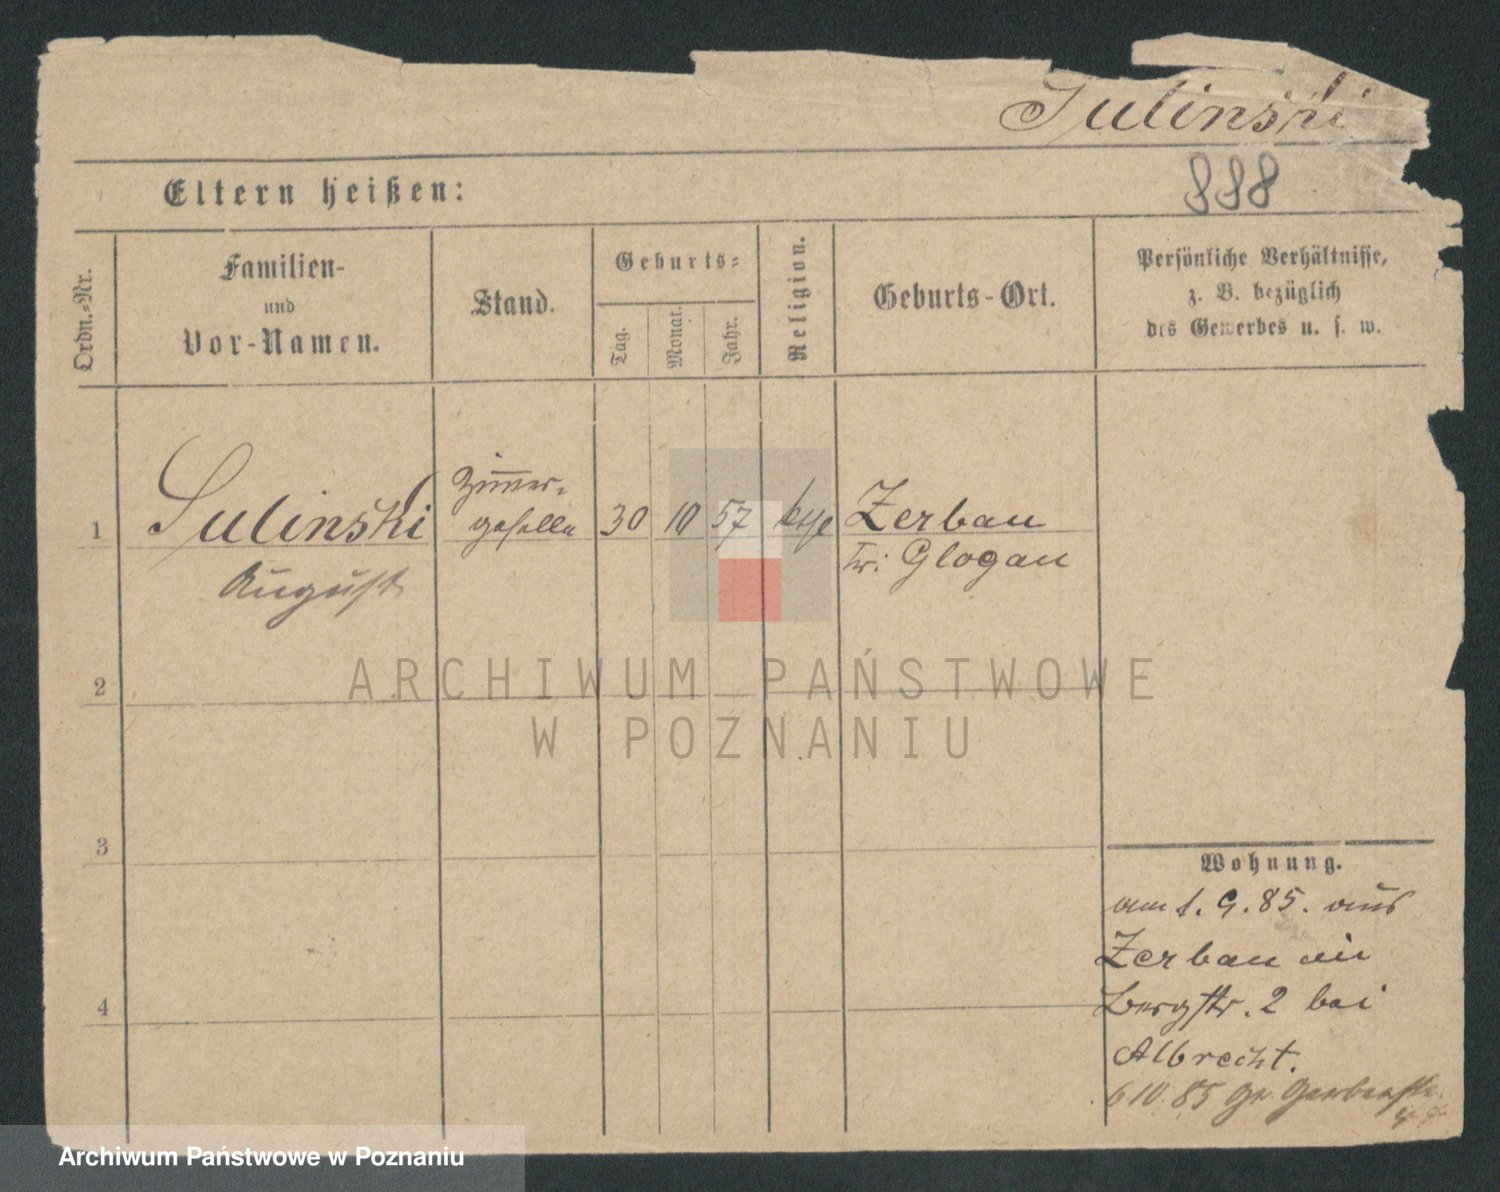 Sulinski
888
Eltern heißen:
Ordn.-Nr.
Familien-
und
Vor-Namen.
Stand.
Geburts-
Tag.
Monat.
Jahr.
Religion.
Geburts-Ort.
Persönliche Verhältnisse,
z. B. bezüglich
des Gewerbes u. s. w.
1
Sulinski
August
Zim̅er-
geselle
30
10
57
Zerbau
Kr: Glogau
2
3
4
Wohnung.
am 1. 9. 85. aus
Zerbau in
Bergstr. 2 bei
Albrecht.
6 10. 85 Gr. Gerberstr.
ARCHIWUM PAŃSTWOWE
W POZNANIU
Archiwum Państwowe w Poznaniu